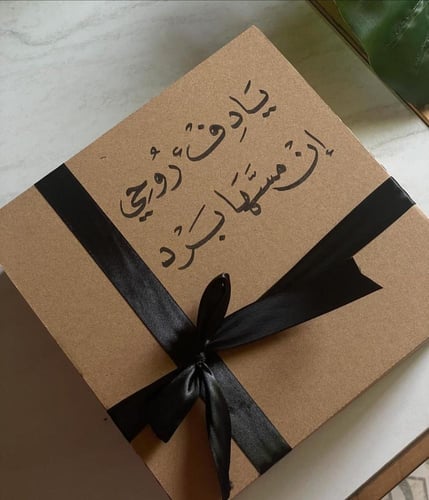 يَادِفْ رُوُحِي
إنْ مسَّهَا بَرَد